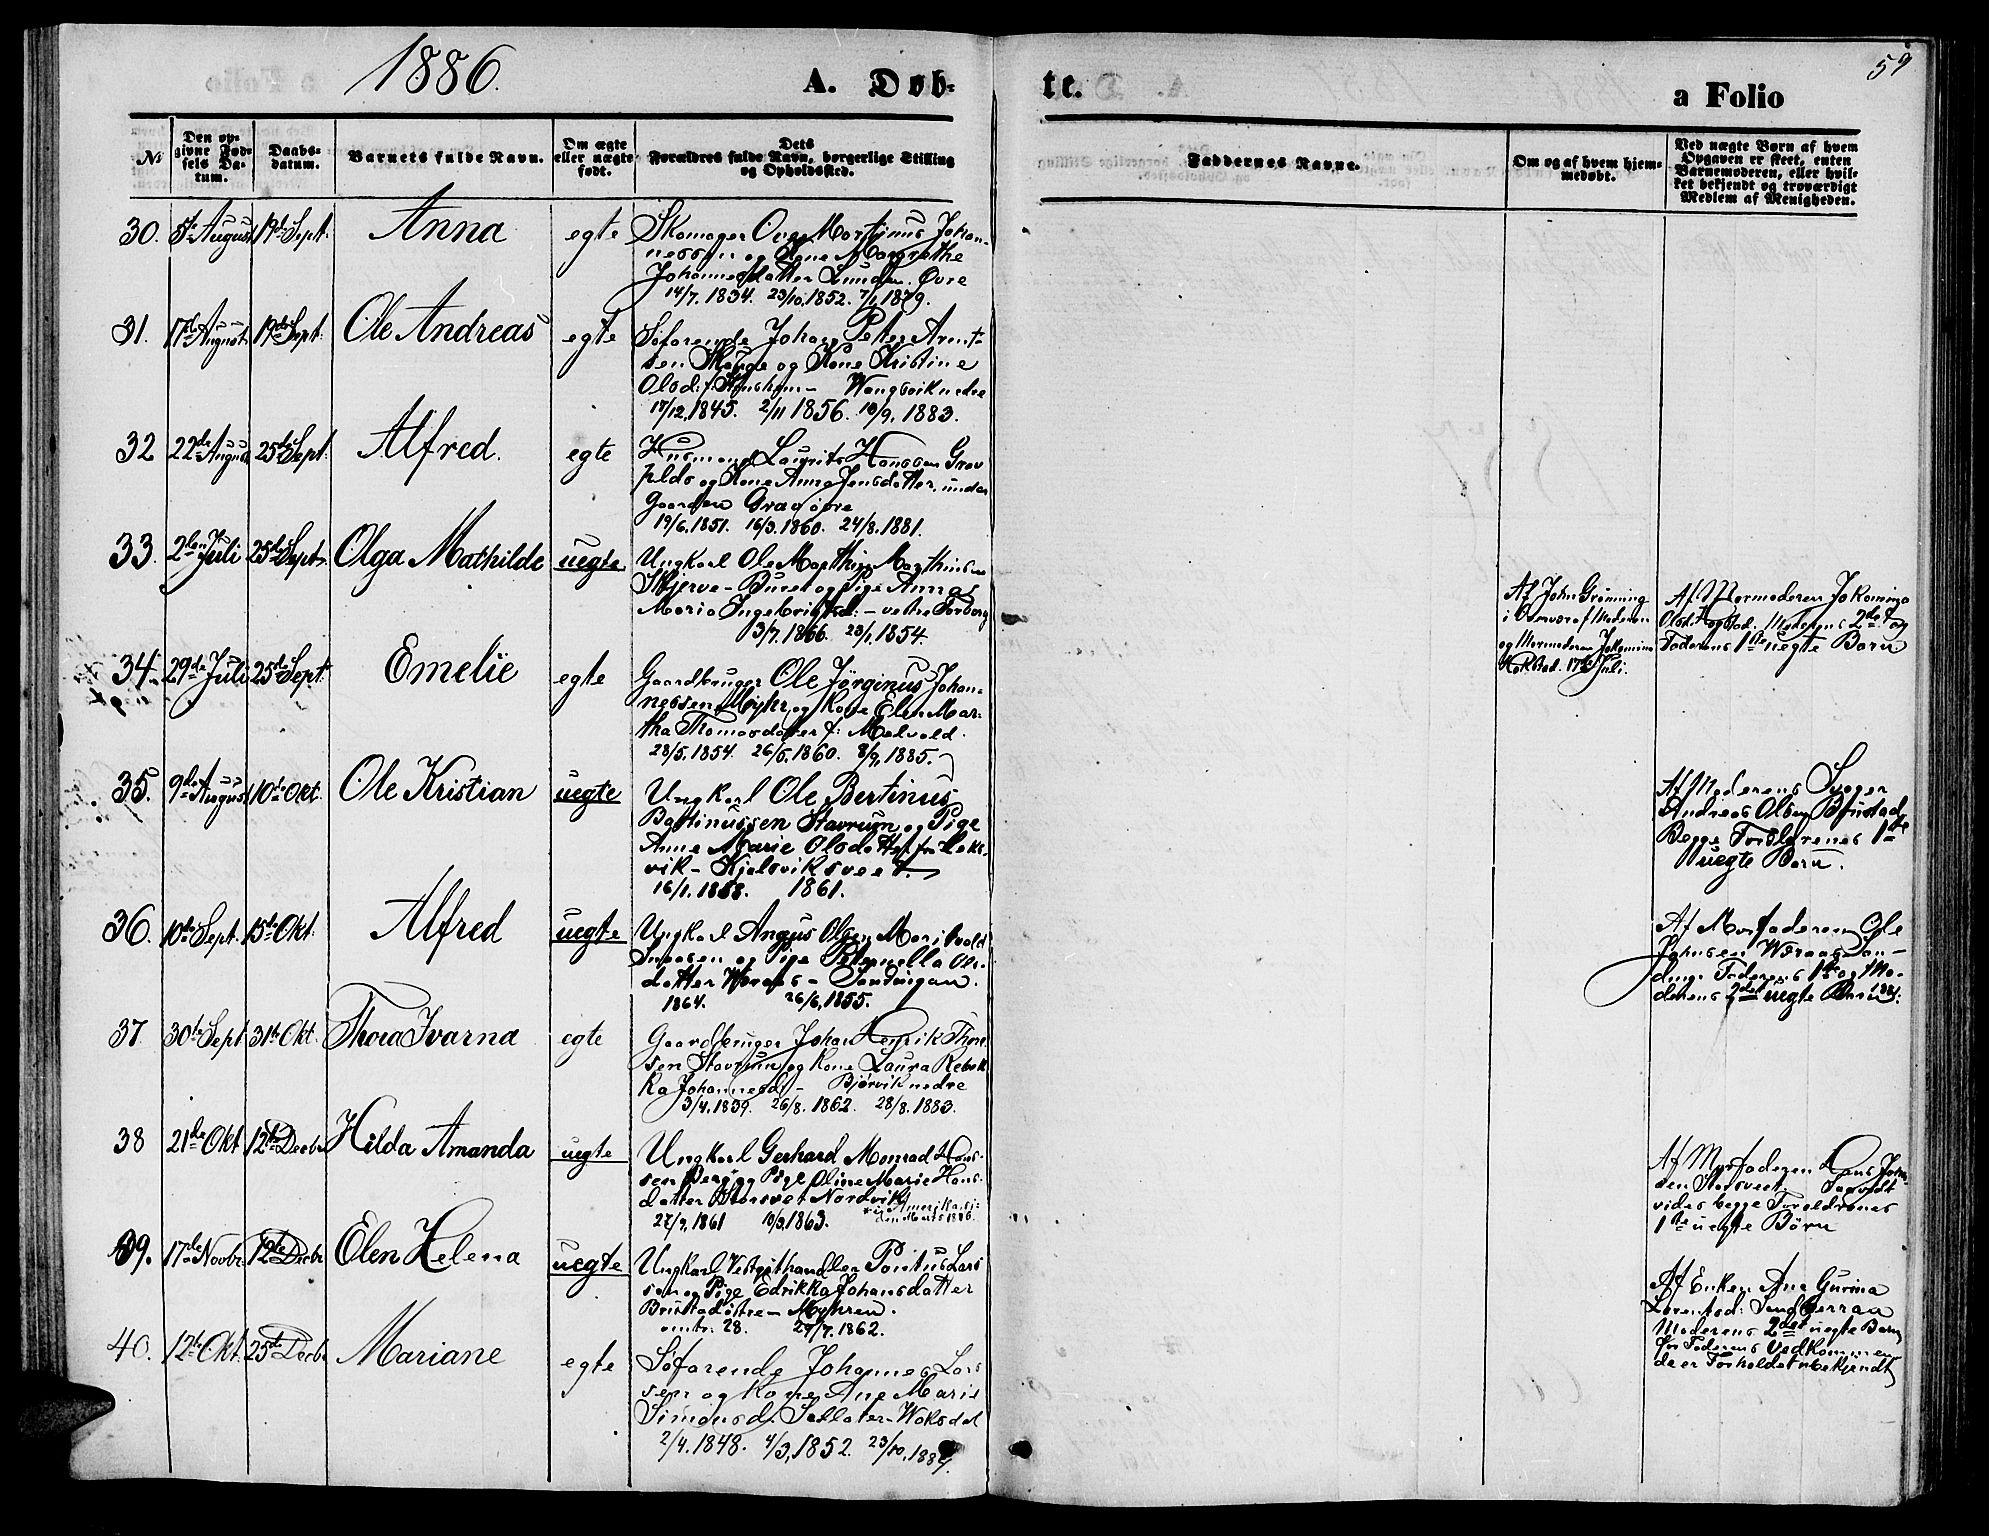 1886.
A. Døb-
te.
59
a Folio
No
Den op-
givne Fød-
sels Da-
tum.
Daabs-
datum.
Barnets fulde Navn.
Om ægte
eller uægte
født.
Dets
Forældres fulde Navn, borgerlige Stilling
og Opholdssted.
Faddernes Navne.
Om og af hvem hjem-
medøbt.
Ved uægte Børn af hvem
Opgaven er skeet, enten
Barnemoderen, eller hvil-
ket bekjendt og troværdigt
Medlem af Menigheden.
30. 5te August 19de Sept. Anna egte
Skomager Johan-
nessen og Kone Margrethe
Johannesdatter Lunden Øvre
14/7. 1834. 23/10.1852. 7/1.1879.
31. 17de August 19de Sept. Ole Andreas egte
Søfarende Johan Peter Arnt-
sen Skauge og Kone Kristine
Olsd. f. Wangsvik nedre
17/12.1845. 2/11 1856. 10/9. 1883.
32 22de August 25de Sept. Alfred. egte
Husmand Laurits Hanssen Grav
og Kone Anna Jensdatter, under
Gaarden Grav øvre
19/6.1851. 16/3.1860. 24/8.1881.
33. 2den Juli 25de Sept. Olga Mathilde uegte
Ungkarl Ole Marthin Marthinsen
Skjerve - Buret og Pige Anna
Maria Ingebrigtsd. - vestre Forberg
3/7.1866. 23/1.1854.
Af John Grønning
i Overvær af Moderen
og Mormoderen Jokomina
Hokstad. 17de Juli.
Af Mormoderen Jokomina
Olsdt. Hokstad. Moderens 2det og
Faderens 1ste uegte Barn
34. 29de Juli 25de Sept. Emelie egte
Gaardbruger Ole Jørginus Johan-
nessen Myhr og Kone Elen Mar-
tha Thomasdatter f: Melvold.
28/5.1854. 26/5.1860. 8/9.1885.
35. 9de August 10de Okt. Ole Kristian uegte
Ungkarl Ole Bertinus
Bastinussen Stavrum og Pige
Anne Marie Olsdatter fra Leks-
vik - Kjelsviksveet.
16/1.1858. 1861.
Af Moderens Svoger
Andreas Olsen Brustad
Begge Forældrenes 1ste
uegte Barn.
36. 10de Sept. 15de Okt. Alfred uegte
Ungkarl Angus Olsen Marikvold
Snaasen og Pige Peternella Ols-
datter Weraas - Sandvigan.
1864. 26/6.1855.
Af Morfaderen Ole
Johnsen Weraas San-
dvig: Faderens 1ste og Mo-
derens 2det uegte Barn
37. 30te Sept. 31te Okt. Thora Ivarna egte
Gaardbruger Johan Henrik Thom-
sen Stavrum og Kone Laura Rebek-
ka Johannesd. - Bjørvik nedre
3/4.1839. 26/8. 1862. 28/8.1883.
38 21de Okt. 12te Decbr. Hilda Amanda uegte
Ungkarl Gerhard Monrad Hans-
sen Berg og Pige Oline Marie Hans-
datter Storsvet Nordvik
27/9.1861 10/3.1863. Amerika si-
den Marts 1886.
Af Morfaderen Hans John-
sen Storsveet. Saavidt
vides begge Foreldrenes
1ste uegte Børn
39. 17de Novbr. 12te Decbr. Elen Helena uegte
Ungkarl Vestgøthandler Pontus Lars
sen og Pige Edrikka Johansdatter
Brustad østre - Myhren.
omtr. 28. 29/7.1862.
Af Enken Ane Gurina
Lorentsd: Sandberran
Moderens 2det uegte Barn
for Faderens Vedkommen
de er Forholdet ubekjendt
40. 12te Okt. 25de Decbr. Mariane egte
Søfarende Johannes Lars
sen og Kone Ane Marie
Simonsd. Salater-Woksdal
2/4.1848. 4/3.1852. 23/10.1884.